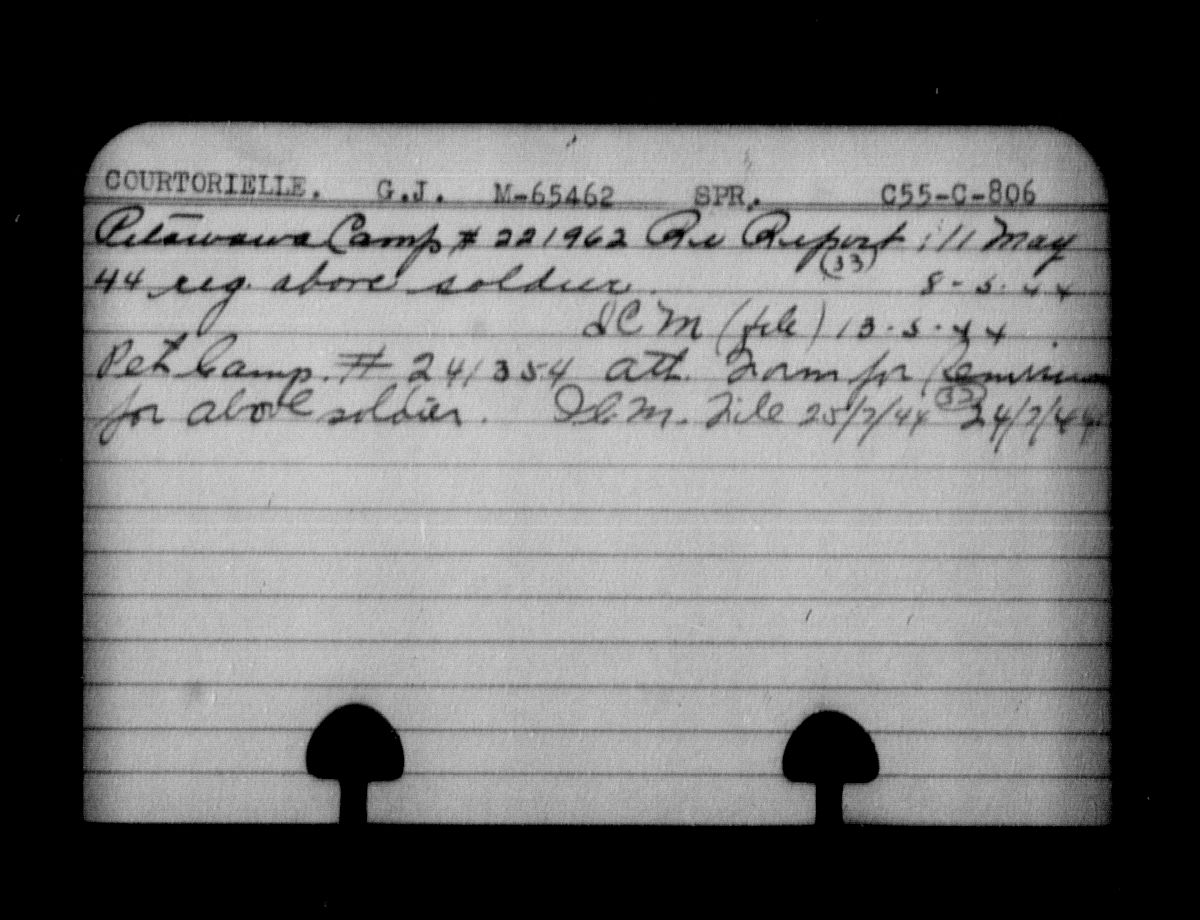 COURTORIELLE. G.J. M-65462 SPR. C55-C-806
Petawawa Camp # 221962 Re Report 11 May
(33)
44 reg. above soldier. 8-5-44
DCM (file) 13-5-44.
Pet Camp. # 241354 att. Form for
for above soldier. D.C.M. File 25/7/44 24/7/44